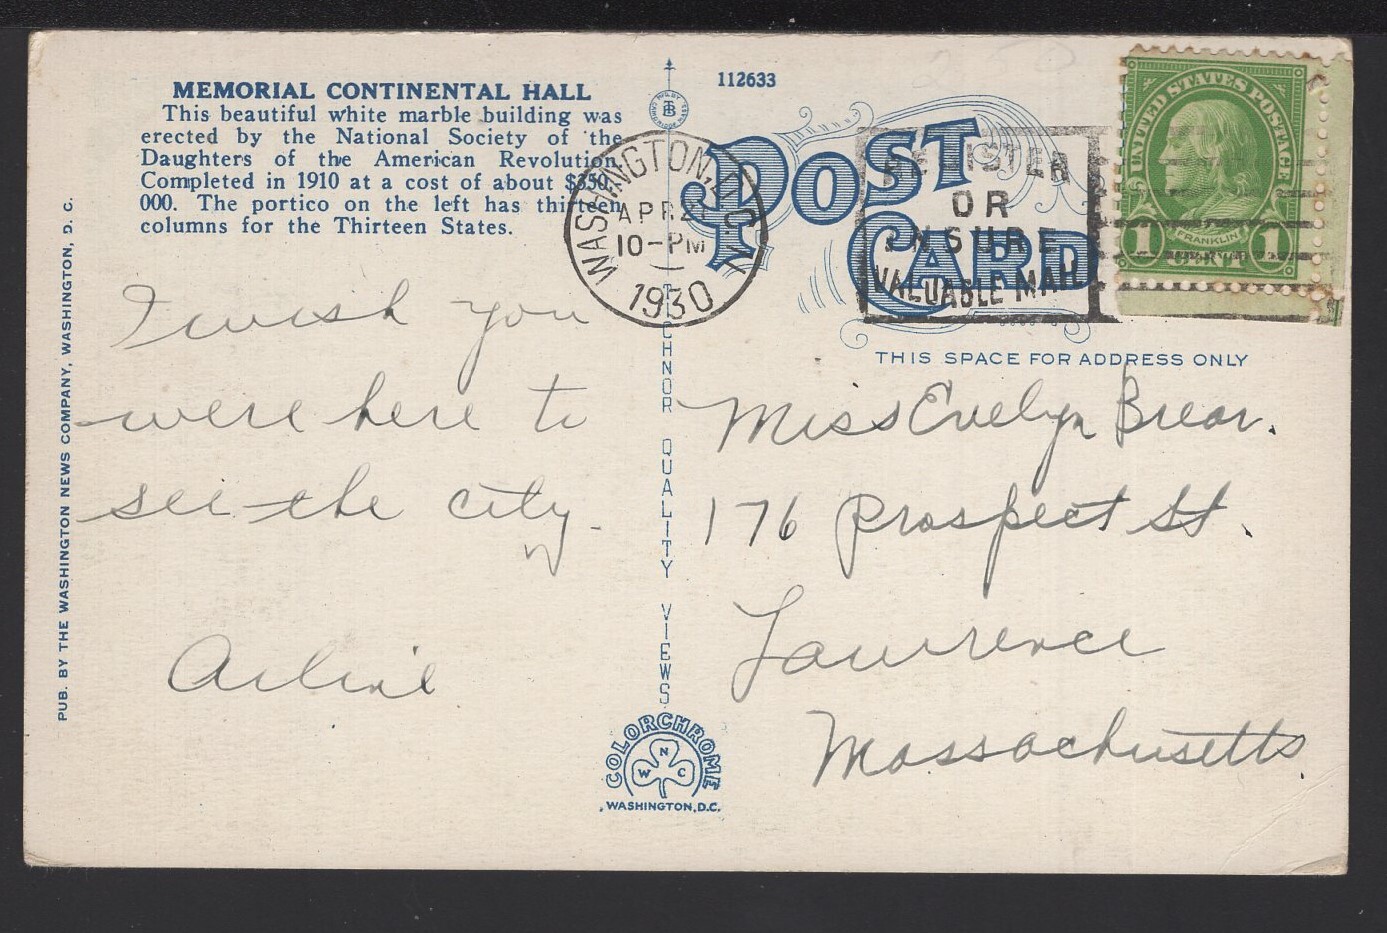 MEMORIAL CONTINENTAL HALL
This beautiful white marble building was
erected by the National Society of the
Daughters of the American Revolution.
Completed in 1910 at a cost of about $350,-
000. The portico on the left has thirteen
columns for the Thirteen States.
PUB. BY THE WASHINGTON NEWS COMPANY, WASHINGTON, D. C.
I wish you
were here to
see the city.
Arline
112633
TECHNOR QUALITY VIEWS
COLORCHROME
N
W C
WASHINGTON, D.C.
WASHINGTON, D.C.
APR 2
10-PM
1930
POST
CARD
REGISTER
OR
INSURE
VALUABLE MAIL
UNITED STATES POSTAGE
FRANKLIN
1 CENT 1
THIS SPACE FOR ADDRESS ONLY
Miss Evelyn Brear.
176 Prospect St.
Lawrence
Massachusetts